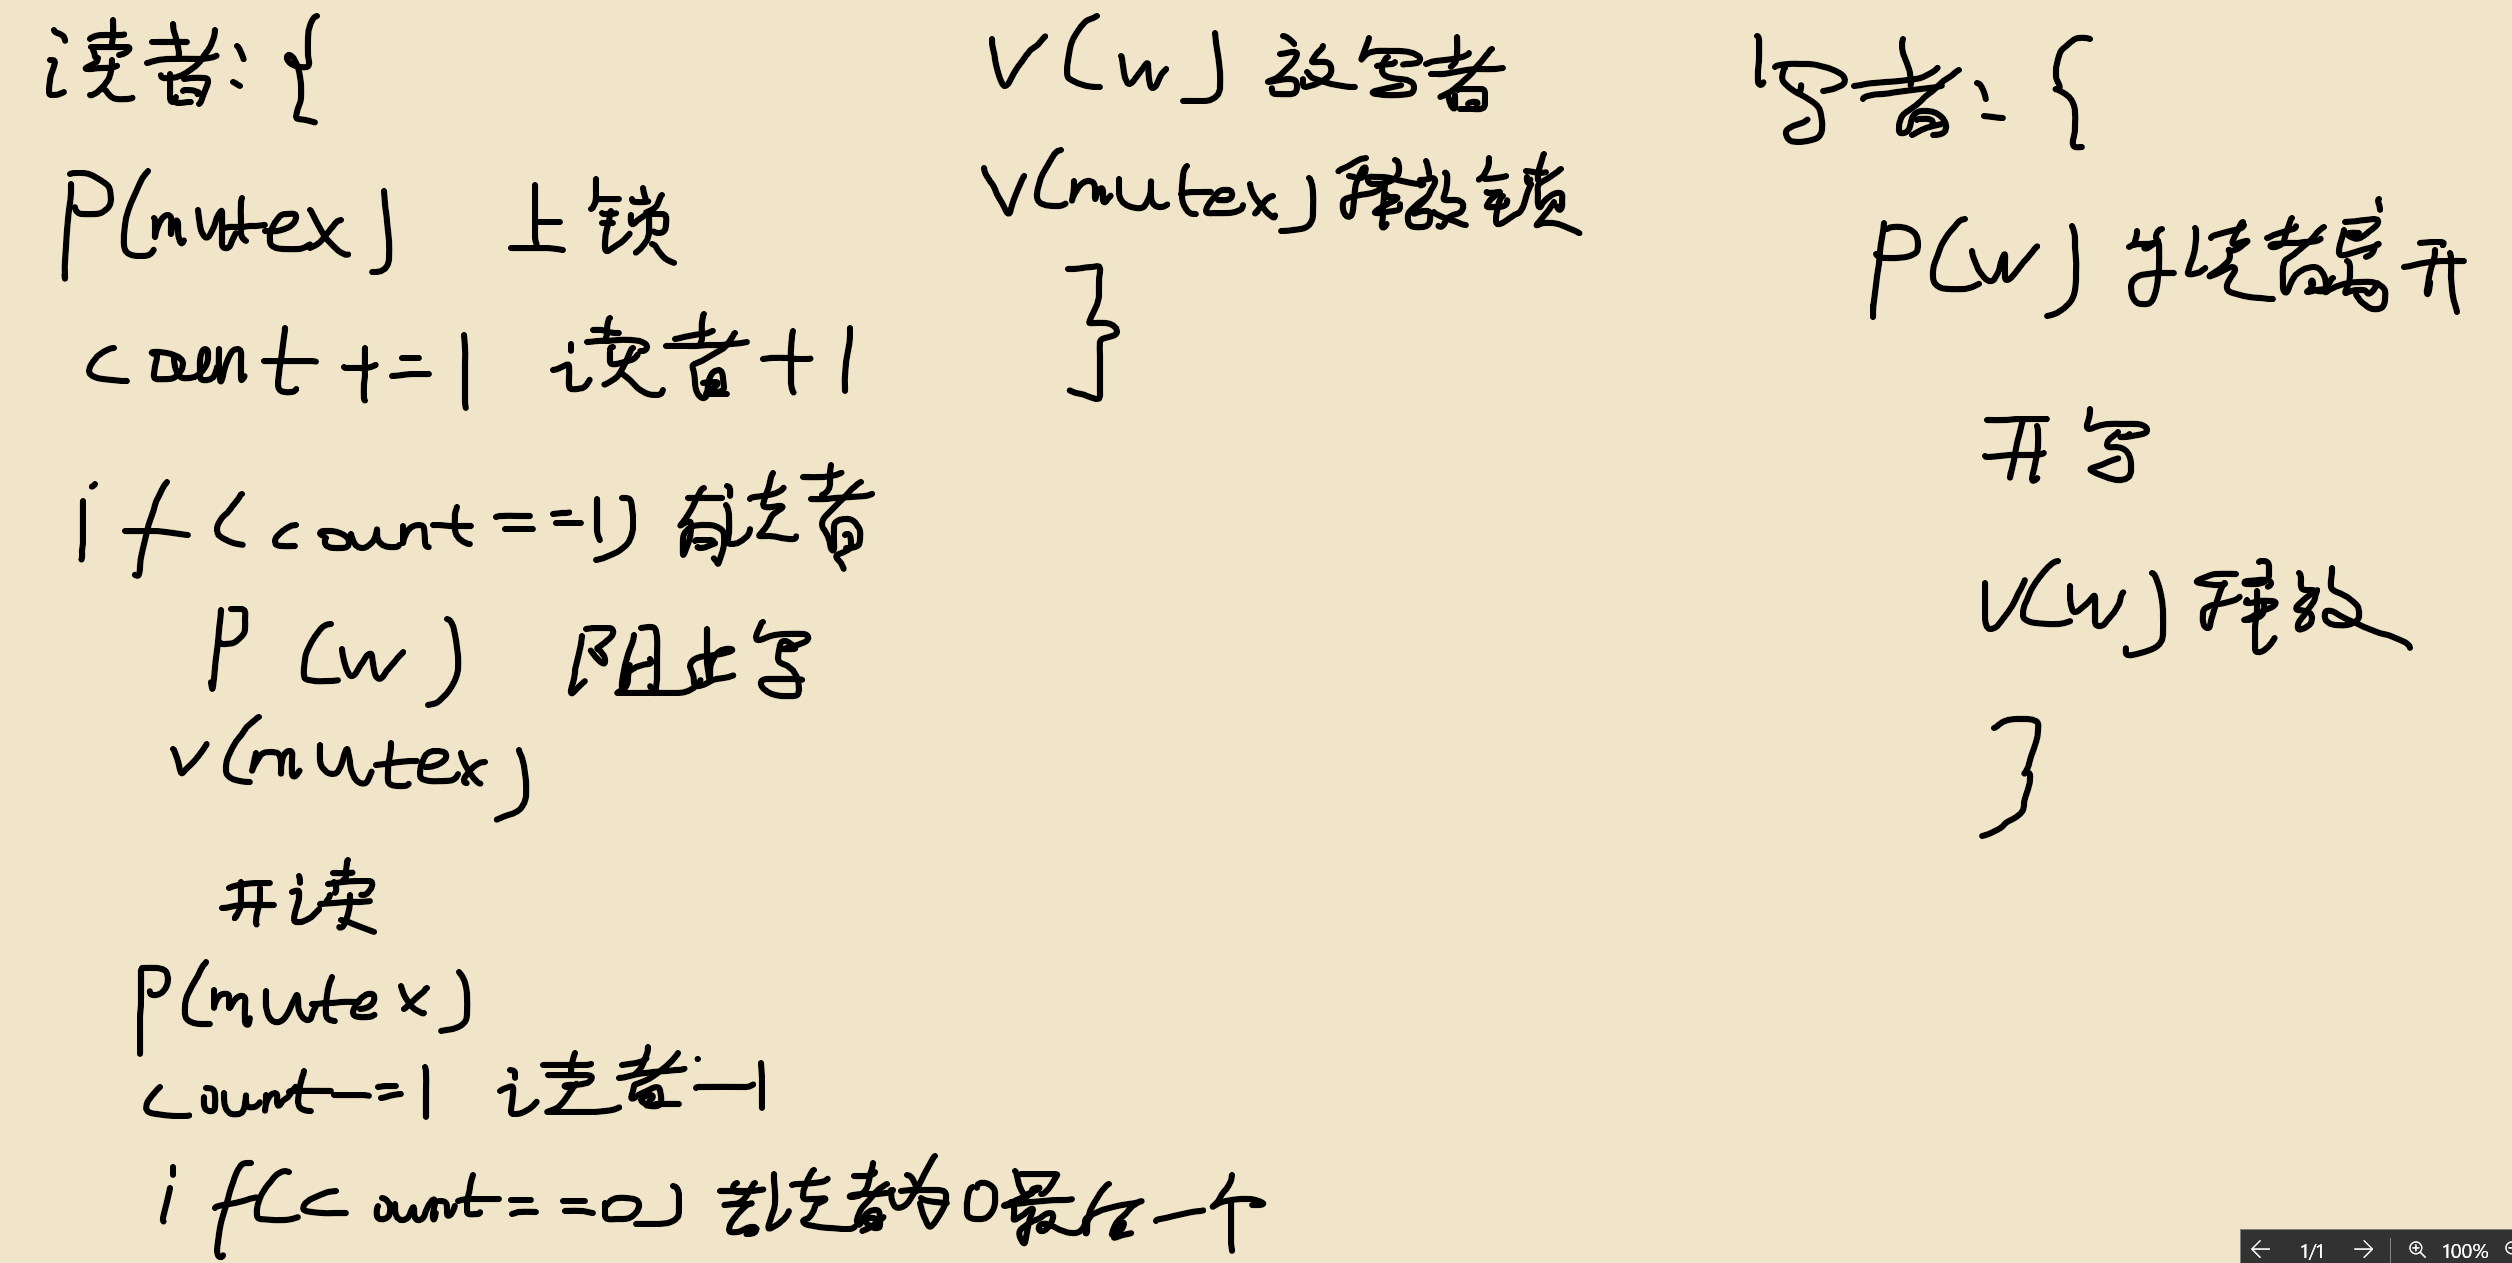 读者:{
P(mutex) 上锁
count+=1 读者+1
if(count==1) 有读者
P(w) 阻止写
V(mutex)
开读
P(mutex)
count-=1 读者-1
if(count==0) 若读者为0最后一个
V(w) 放写者
V(mutex) 释放锁
}
写者:{
P(w) 等读者
开写
V(w) 释放
}
1/1 100%